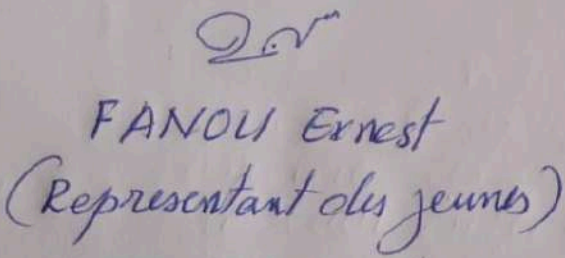 FANOU Ernest
(Representant des jeunes)